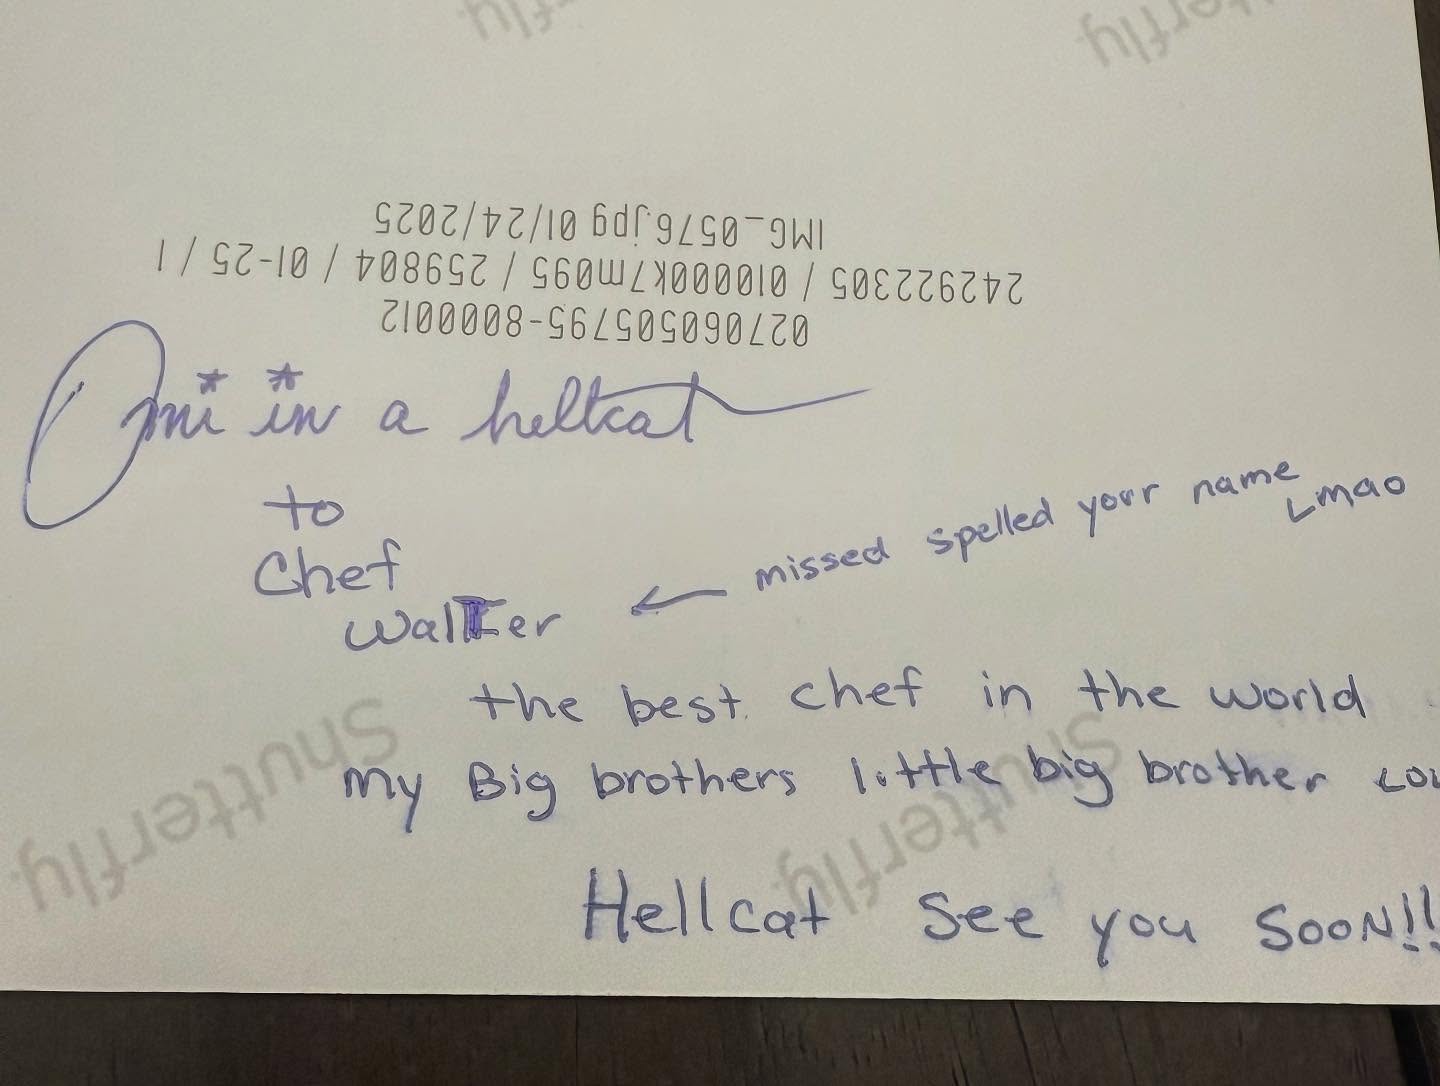 Shutterfly
IMG_0576.jpg 01/24/2025
242922305 / 010000k7m095 / 259804 / 01-25 / 1
027060505795-8000012
Omi in a hellcat
to
Chef
Walter ← missed spelled your name Lmao
the best chef in the world
my Big brothers little big brother
Hellcat See you SooN!!
Shutterfly
Shutterfly